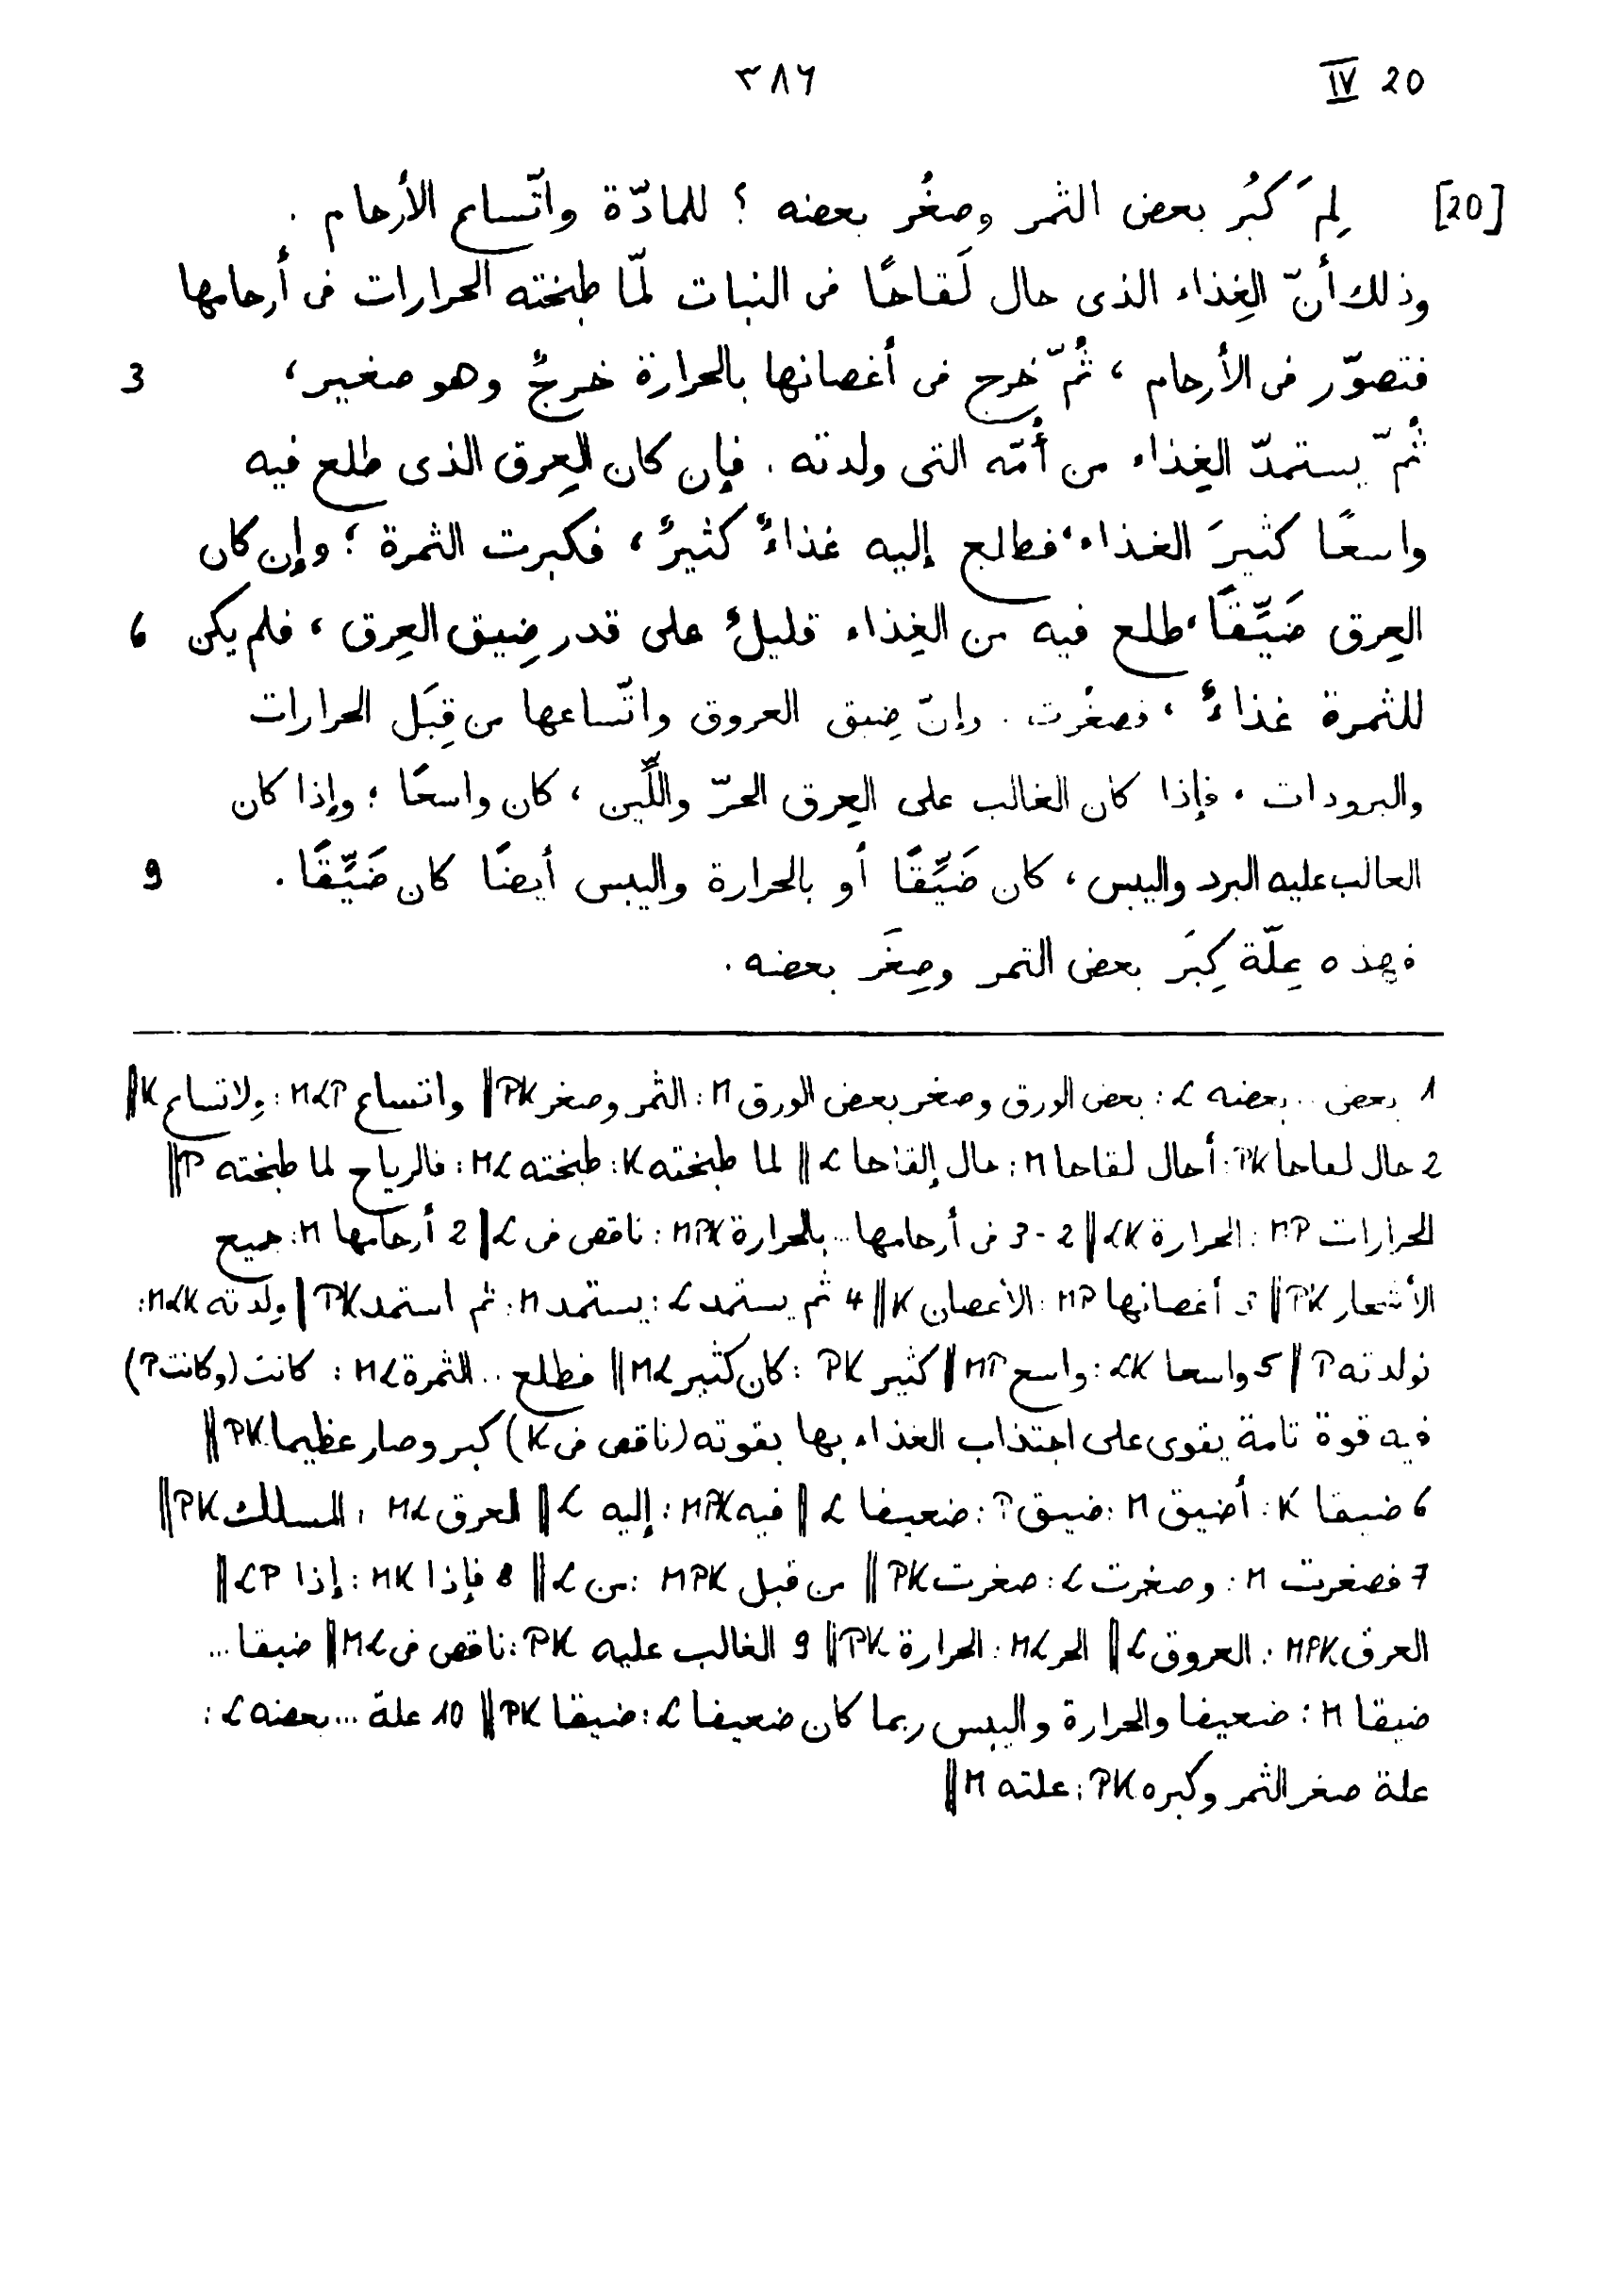 ٣٨٦ IV 20
[20] لِمَ كبُر بعض الثمر وصغُر بعضه ؟ للمادّة واتّساع الأرحام .
وذلك أنّ الغِذاء الذى حال لَقاحًا فى النبات لمّا طبخته الحرارات فى أرحامها
فتصوّر فى الأرحام ، ثُمّ خرج فى أغصانها بالحرارة خرجٌ وهو صغير ، 3
ثُمّ يستمدّ الغِذاء من أُمّه التى ولدته . فإن كان العِرق الذى طلع فيه
واسعًا كثيرَ الغذاء ، فطلع إليه غذاءٌ كثيرٌ ، فكبرت الثمرة ؛ وإن كان
العِرق ضَيِّقًا ، طلع فيه من الغِذاء قليلٌ على قدر ضِيق العِرق ، فلم يكن 6
للثمرة غذاءٌ ، فصغُرت . وإنّ ضِيق العروق واتّساعها من قِبَل الحرارات
والبرودات . فإذا كان الغالب على العِرق الحرّ واللِّين ، كان واسعًا ؛ وإذا كان
الغالب عليه البرد واليبس ، كان ضَيِّقًا أو بالحرارة واليبس أيضًا كان ضَيِّقًا . 9
فهذه عِلّة كِبَر بعض الثمر وصِغَر بعضه .
1 بعض .. بعضه L : بعض الورق وصغر بعض الورق M : الثمر وصغر PK || واتساع MLP : ولاتساع K ||
2 حال لعاحا PK : أحال لقاحا M : حال إلقاحا L || لما طبخته K : طبخته ML : فالرياح لما طبخته P ||
الحرارات MP : الحرارة LK || 2-3 فى أرحامها .. بالحرارة MPK : ناقص فى L || 2 أرحامها M : جميع
الأشجار PK || 3 أغصانها MP : الأغصان K || 4 ثم يستمد L : يستمد M : ثم استمد PK || ولدته MLK :
تولدته P || 5 واسعا LK : واسع MP || كثير PK : كان كثير ML || فطلع .. الثمرة ML : كانت (وكانت P)
فيه قوة تامة يقوى على اجتذاب الغذاء بها بقوته (ناقص فى K) كبر وصار عظيما PK ||
6 ضيقا K : أضيق M : ضيق P : ضعيفا L || فيه MPK : إليه L || العرق ML : المسلك PK ||
7 فصغرت M : وصغرت L : صغرت PK || من قبل MPK : من L || 8 فإذا MK : إذا LP ||
العرق MPK : العروق L || الحر ML : الحرارة PK || 9 الغالب عليه PK : ناقص فى ML || ضيقا ...
ضيقا M : ضعيفا والحرارة واليبس ربما كان ضعيفا L : ضيقا PK || 10 علة ... بعضه L :
علة صغر الثمر وكبره PK : علته M ||